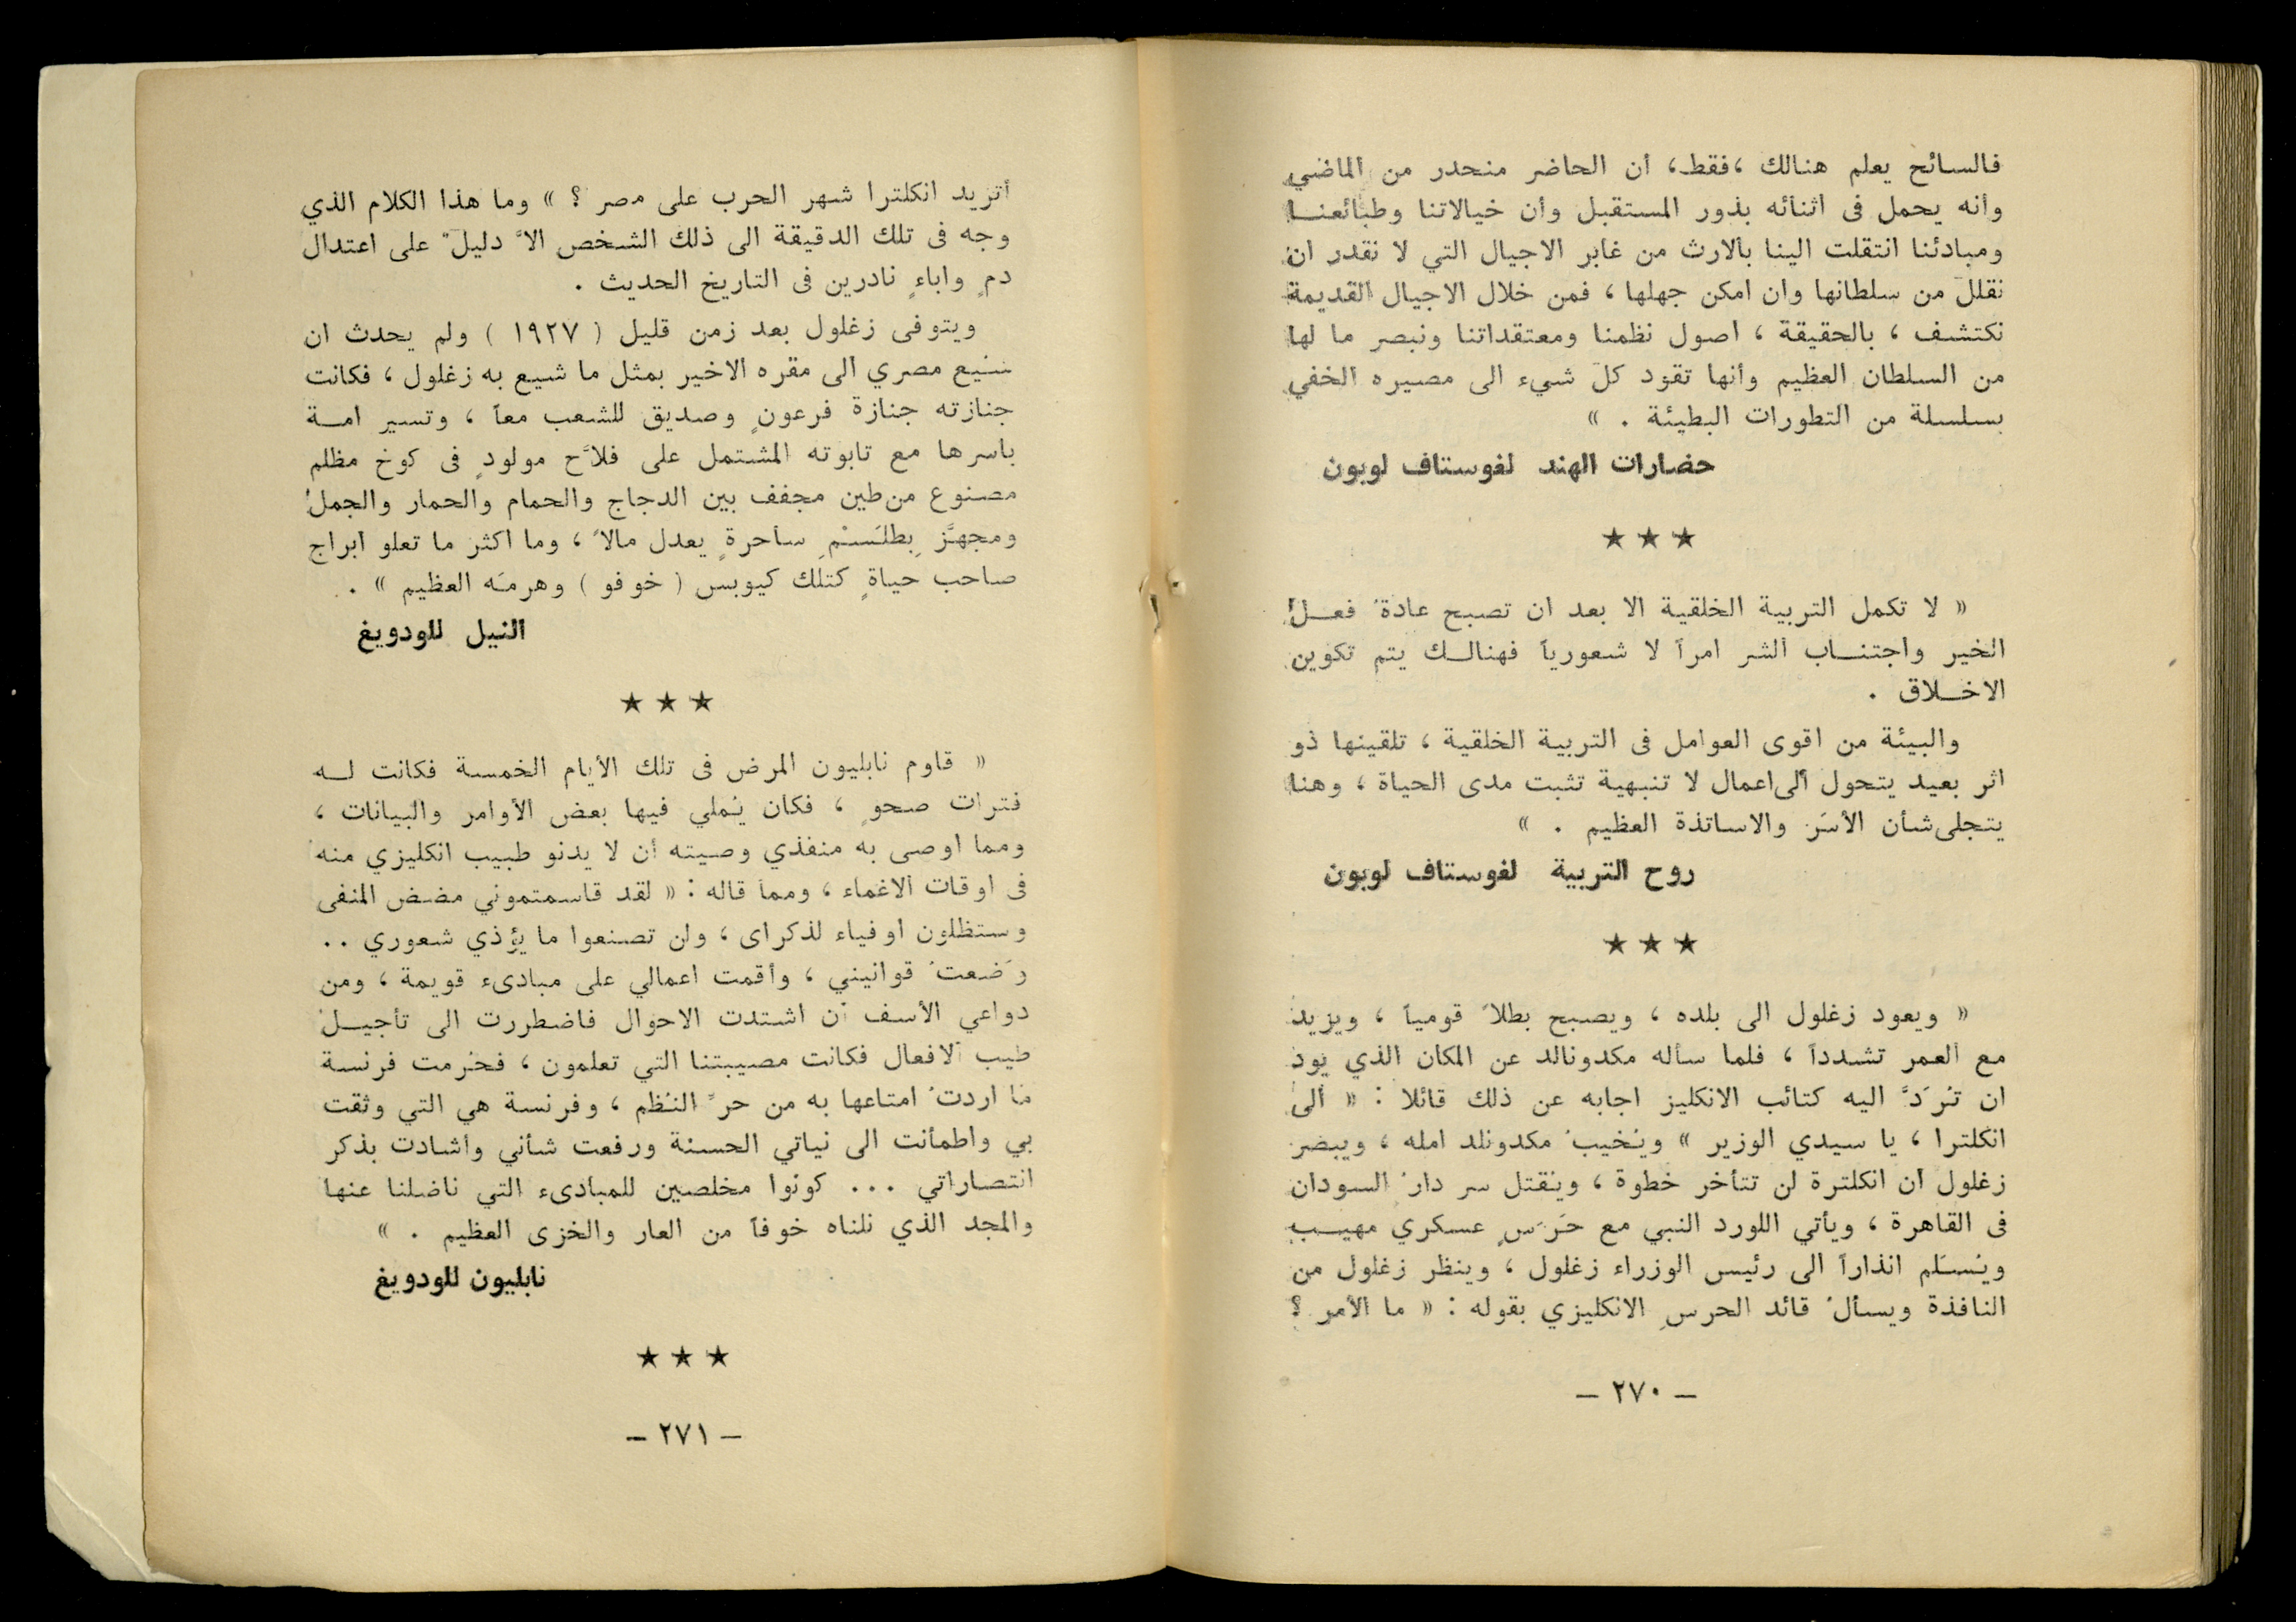 فالسائح يعلم هنالك ،فقط، أن الحاضر منحدر من الماضي
وأنه يحمل فى اثنائه بذور المستقبل وأن خيالاتنا وطبائعنـا
ومبادئنا انتقلت الينا بالارث من غابر الاجيال التي لا نقدر ان
نقلل من سلطانها وان امكن جهلها ، فمن خلال الاجيال القديمة
نكتشف ، بالحقيقة ، اصول نظمنا ومعتقداتنا ونبصر ما لها
من السلطان العظيم وأنها تقود كل شيء الى مصيره الخفي
بسلسلة من التطورات البطيئة . »
حضارات الهند لغوستاف لوبون
★ ★ ★
« لا تكمل التربية الخلقية الا بعد ان تصبح عادةُ فعــل
الخير واجتنــاب الشر امراً لا شعورياً فهنالـك يتم تكوين
الاخــلاق .
والبيئة من اقوى العوامل فى التربية الخلقية ، تلقينها ذو
اثر بعيد يتحول الى اعمال لا تنبهية تثبت مدى الحياة ، وهنا
يتجلى شأن الأسَر والاساتذة العظيم . »
روح التربية لغوستاف لوبون
★ ★ ★
« ويعود زغلول الى بلده ، ويصبح بطلاً قومياً ، ويزيد
مع العمر تشدداً ، فلما سأله مكدونالد عن المكان الذي يود
ان تُرَدَّ اليه كتائب الانكليز اجابه عن ذلك قائلا : « الى
انكلترا ، يا سيدي الوزير » ويُخيبُ مكدونلد امله ، ويبصر
زغلول أن انكلترة لن تتأخر خطوة ، ويُقتل سر دارُ السودان
فى القاهرة ، ويأتي اللورد النبي مع حَرَسٍ عسكري مهيـب
ويُسلَم انذاراً الى رئيس الوزراء زغلول ، وينظر زغلول من
النافذة ويسألُ قائد الحرسِ الانكليزي بقوله : « ما الأمر ؟
— ٢٧٠ —
أتريد انكلترا شهر الحرب على مصر ؟ » وما هذا الكلام الذي
وجه فى تلك الدقيقة الى ذلك الشخص الاَّ دليلٌ على اعتدال
دمٍ واباءٍ نادرين فى التاريخ الحديث .
ويتوفى زغلول بعد زمن قليل ( ١٩٢٧ ) ولم يحدث ان
شيع مصري الى مقره الاخير بمثل ما شيع به زغلول ، فكانت
جنازته جنازة فرعونٍ وصديق للشعب معاً ، وتسير امـة
باسرها مع تابوته المشتمل على فلاَّح مولودٍ فى كوخ مظلم
مصنوع من طين مجفف بين الدجاج والحمام والحمار والجمل
ومجهَّز بِطلَسْمِ ساحرةٍ يعدل مالاً ، وما اكثر ما تعلو ابراج
صاحب حياةٍ كتلك كيوبس ( خوفو ) وهرمَه العظيم » .
النيل للودويغ
★ ★ ★
« قاوم نابليون المرض فى تلك الأيام الخمسة فكانت لـه
فترات صحوٍ ، فكان يُملي فيها بعض الأوامر والبيانات ،
ومما اوصى به منفذي وصيته أن لا يدنو طبيب انكليزي منه
فى اوقات الاغماء ، ومما قاله : « لقد قاسمتموني مضض المنفى
وستظلون اوفياء لذكراى ، ولن تصنعوا ما يؤذي شعوري ..
وَضعتُ قوانيني ، وأقمت اعمالي على مبادىء قويمة ، ومن
دواعي الأسف أن اشتدت الاحوال فاضطررت الى تأجيـل
طيب الافعال فكانت مصيبتنا التي تعلمون ، فحُرمت فرنسة
ما اردتُ امتاعها به من حرِّ النُظم ، وفرنسة هي التي وثقت
بي واطمأنت الى نياتي الحسنة ورفعت شأني واشادت بذكر
انتصاراتي ... كونوا مخلصين للمبادىء التي ناضلنا عنها
والمجد الذي نلناه خوفاً من العار والخزى العظيم . »
نابليون للودويغ
★ ★ ★
— ٢٧١ —